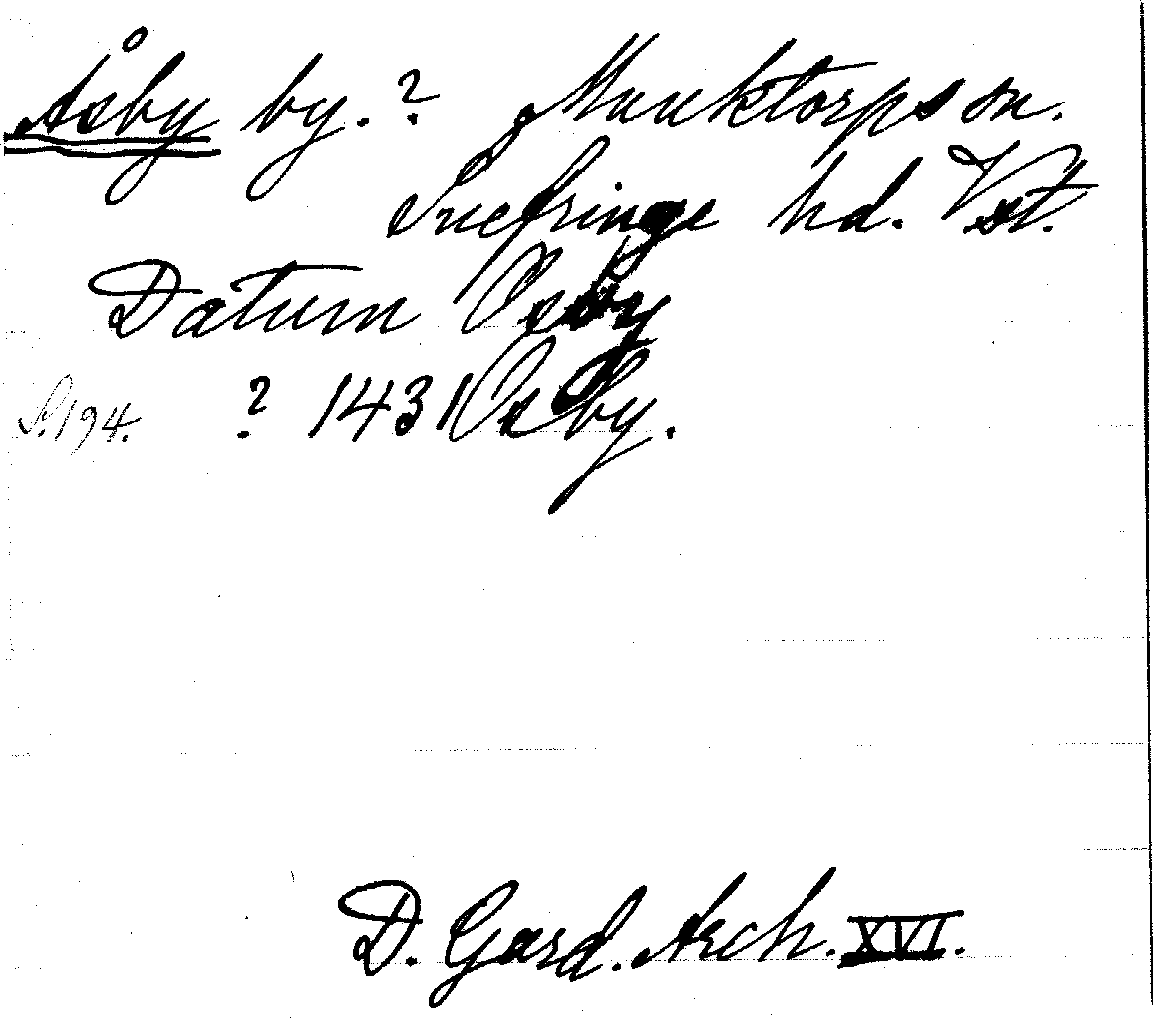 Åsby by. ? Munktorps sn.
Snefringe hd. Vstt.
Datum Osby
S. 194. ? 1431 Osby.
D. Gard. Arch. XVI.